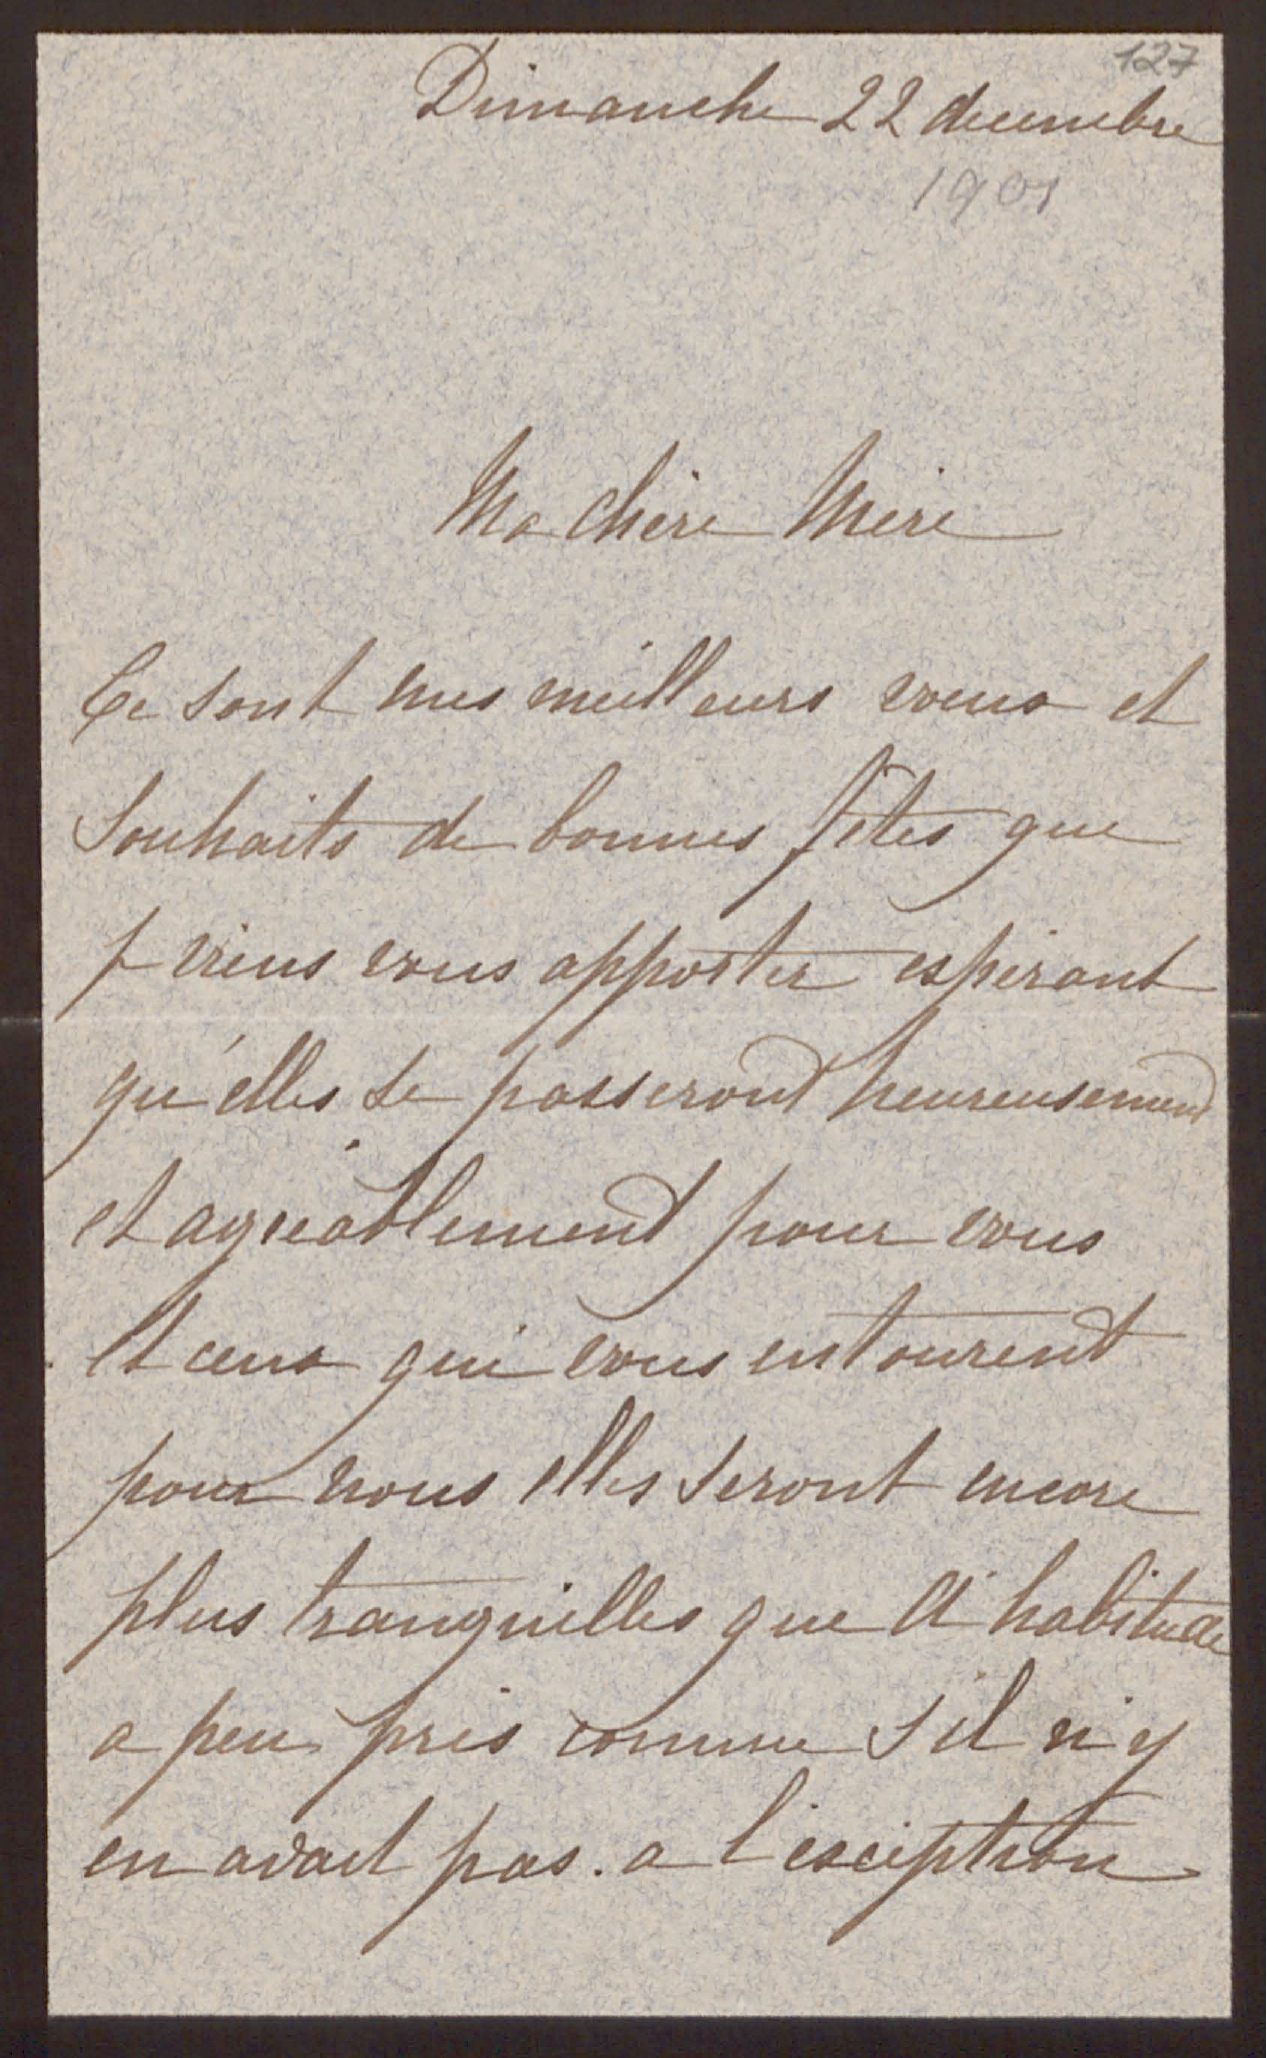 127
Dimanche 22 decembre
1901
Ma chère Mère
Ce sont mes meilleurs voeux et
souhaits de bonnes fêtes que
je viens vous apporter espérant
qu'elles se passeront heureusement
et agréablement pour vous
et ceux qui vous entourent
pour nous elles seront encore
plus tranquilles que d'habitude
a peu près comme s'il n'y
en avait pas. a l'exception